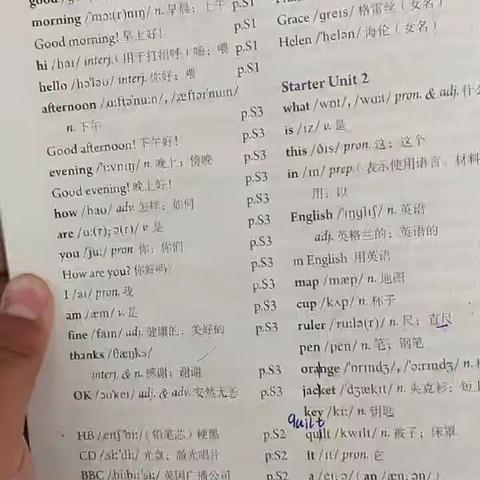 morning /ˈmɔː(r)nɪŋ/ n. 早晨；上午 p.S1
Good morning! 早上好！ p.S1
hi /haɪ/ interj. (用于打招呼) 嗨；喂 p.S1
hello /həˈləʊ/ interj. 你好；喂 p.S1
afternoon /ˌɑːftəˈnuːn/, /ˌæftərˈnuːn/
n. 下午 p.S3
Good afternoon! 下午好！ p.S3
evening /ˈiːvnɪŋ/ n. 晚上；傍晚 p.S3
Good evening! 晚上好！ p.S3
how /haʊ/ adv. 怎样；如何 p.S3
are /ɑː(r); ə(r)/ v. 是 p.S3
you /juː/ pron 你；你们 p.S3
How are you? 你好吗？ p.S3
I /aɪ/ pron. 我 p.S3
am /æm/ v. 是 p.S3
fine /faɪn/ adj. 健康的；美好的 p.S3
thanks /θæŋks/
interj. & n. 感谢；谢谢 p.S3
OK /əʊˈkeɪ/ adj. & adv. 安然无恙 p.S3
HB /ˌeɪtʃˈbiː/ (铅笔芯) 硬黑 p.S2
CD /ˌsiːˈdiː/ 光盘；激光唱片 p.S2
BBC /ˌbiːbiːˈsiː/ 英国广播公司 p.S2
Grace /ɡreɪs/ 格雷丝（女名）
Helen /ˈhelən/ 海伦（女名）
Starter Unit 2
what /wɒt/, /wɑːt/ pron. & adj.
is /ɪz/ v. 是
this /ðɪs/ pron. 这；这个
in /ɪn/ prep. (表示使用语言、材料
用；以
English /ˈɪŋɡlɪʃ/ n. 英语
adj. 英格兰的；英语的
in English 用英语
map /mæp/ n. 地图
cup /kʌp/ n. 杯子
ruler /ˈruːlə(r)/ n. 尺；直尺
pen /pen/ n. 笔；钢笔
orange /ˈɒrɪndʒ/, /ˈɔːrɪndʒ/ n.
jacket /ˈdʒækɪt/ n. 夹克衫；短
key /kiː/ n. 钥匙
quilt
quilt /kwɪlt/ n. 被子；床罩
it /ɪt/ pron. 它